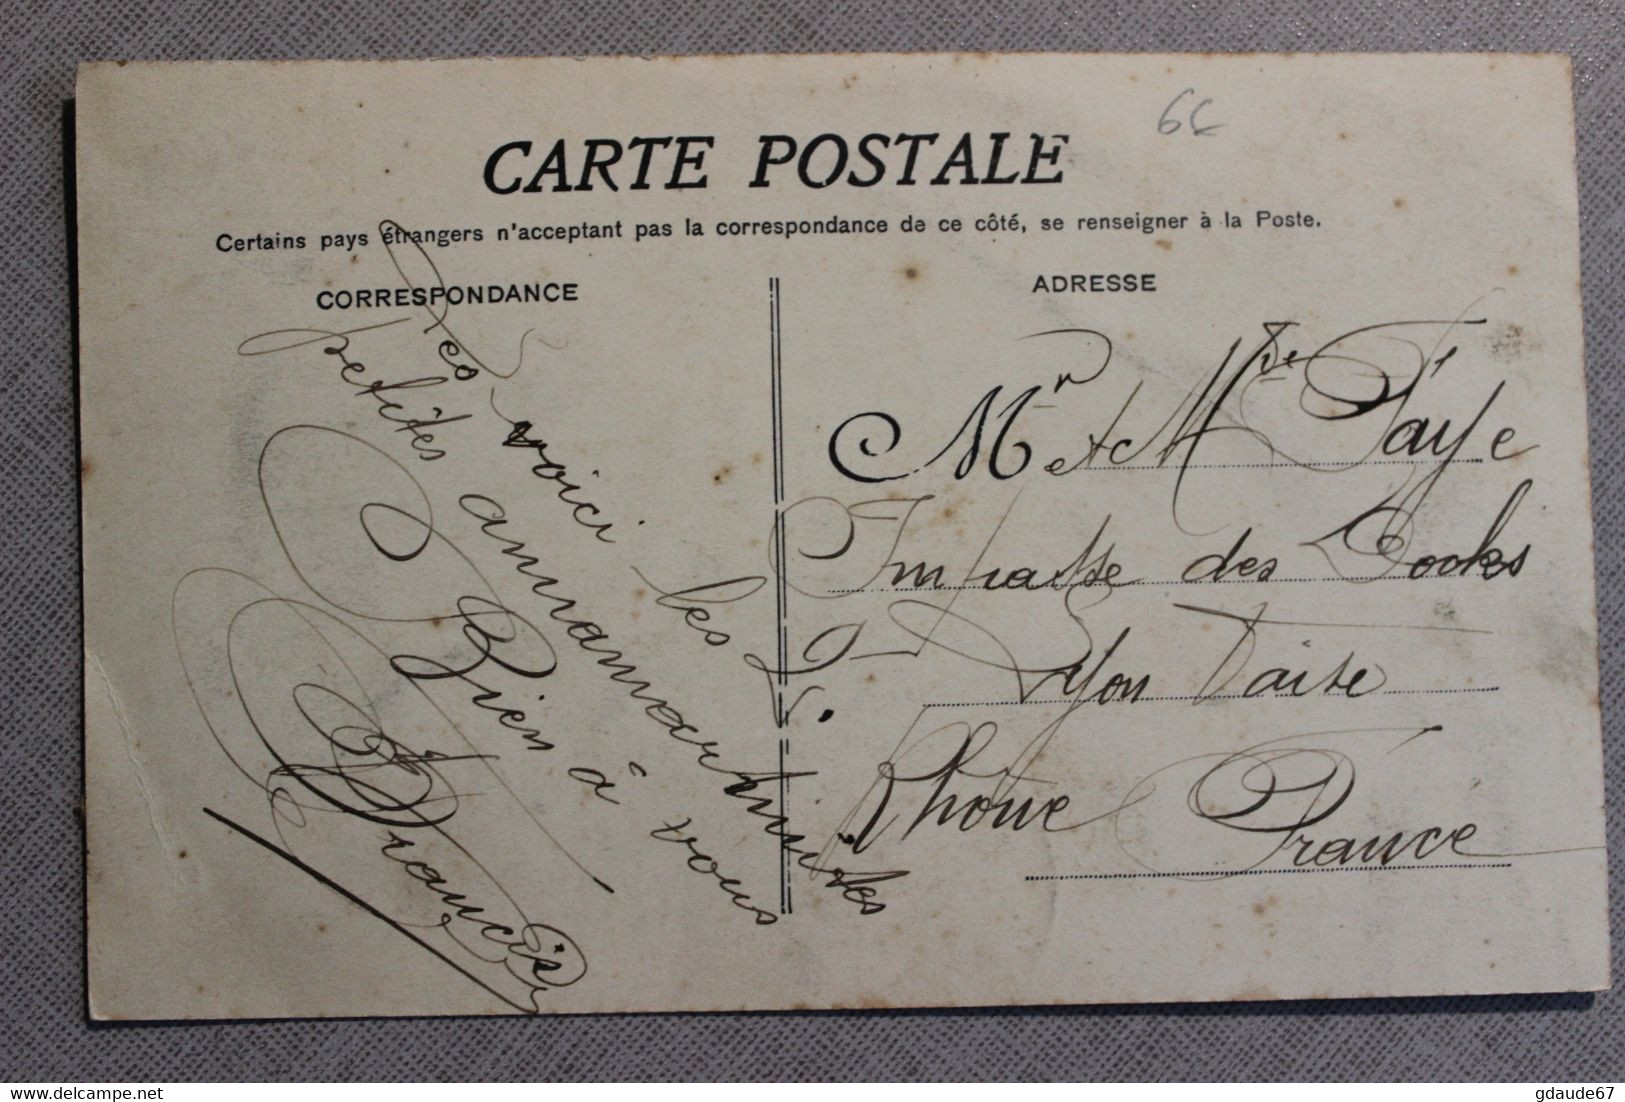 6€
CARTE POSTALE
Certains pays étrangers n'acceptant pas la correspondance de ce côté, se renseigner à la Poste.
CORRESPONDANCE
voici les 2.
petites annamanmites
Bien à vous
Francis
ADRESSE
Mr et Mme Faye
Impasse des
Lyon Vaise
Rhône France
delcampe.net
gdaude67